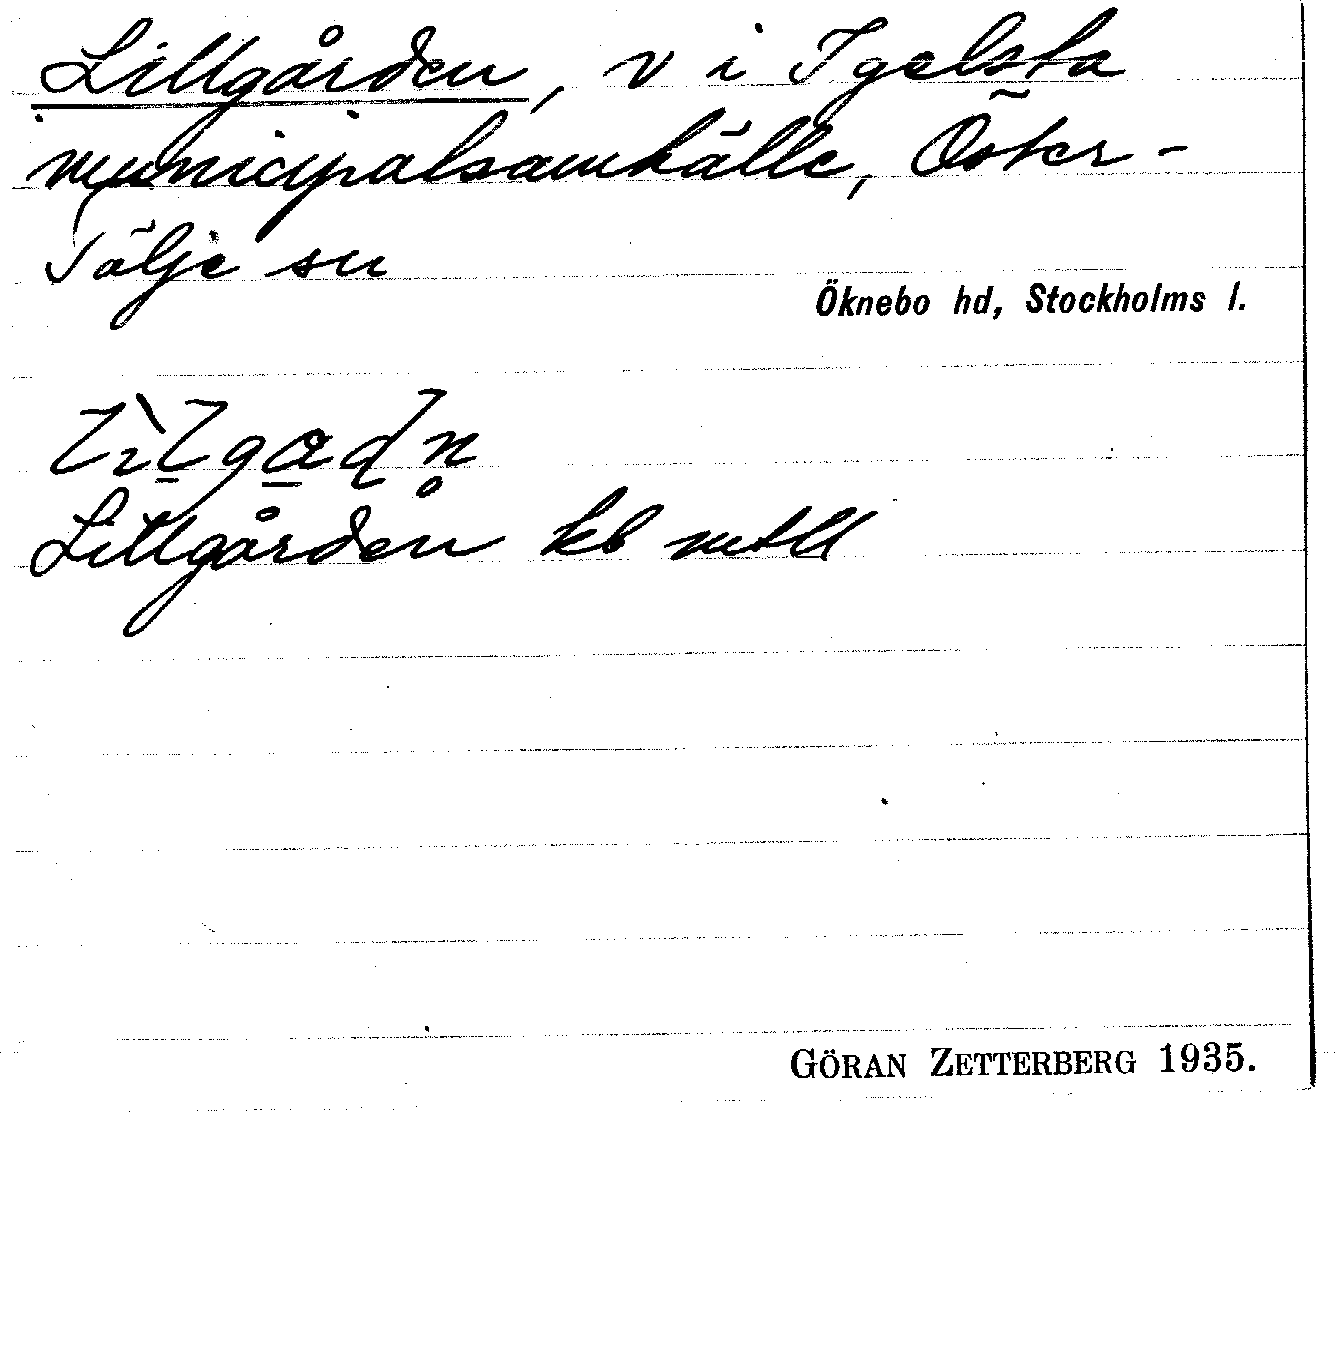 Lillgården, v i Igelsta
municipalsamhälle, Öster-
Tälje sn
Öknebo hd, Stockholms l.
Lillgården kb mtll
GÖRAN ZETTERBERG 1935.